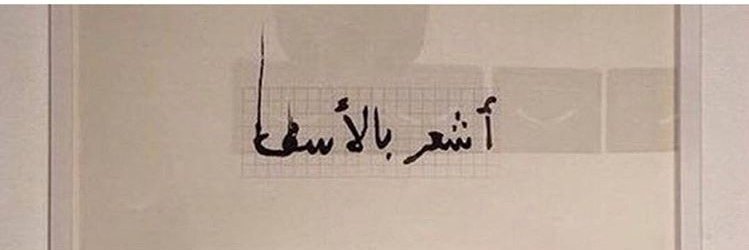 أشعر بالأسف